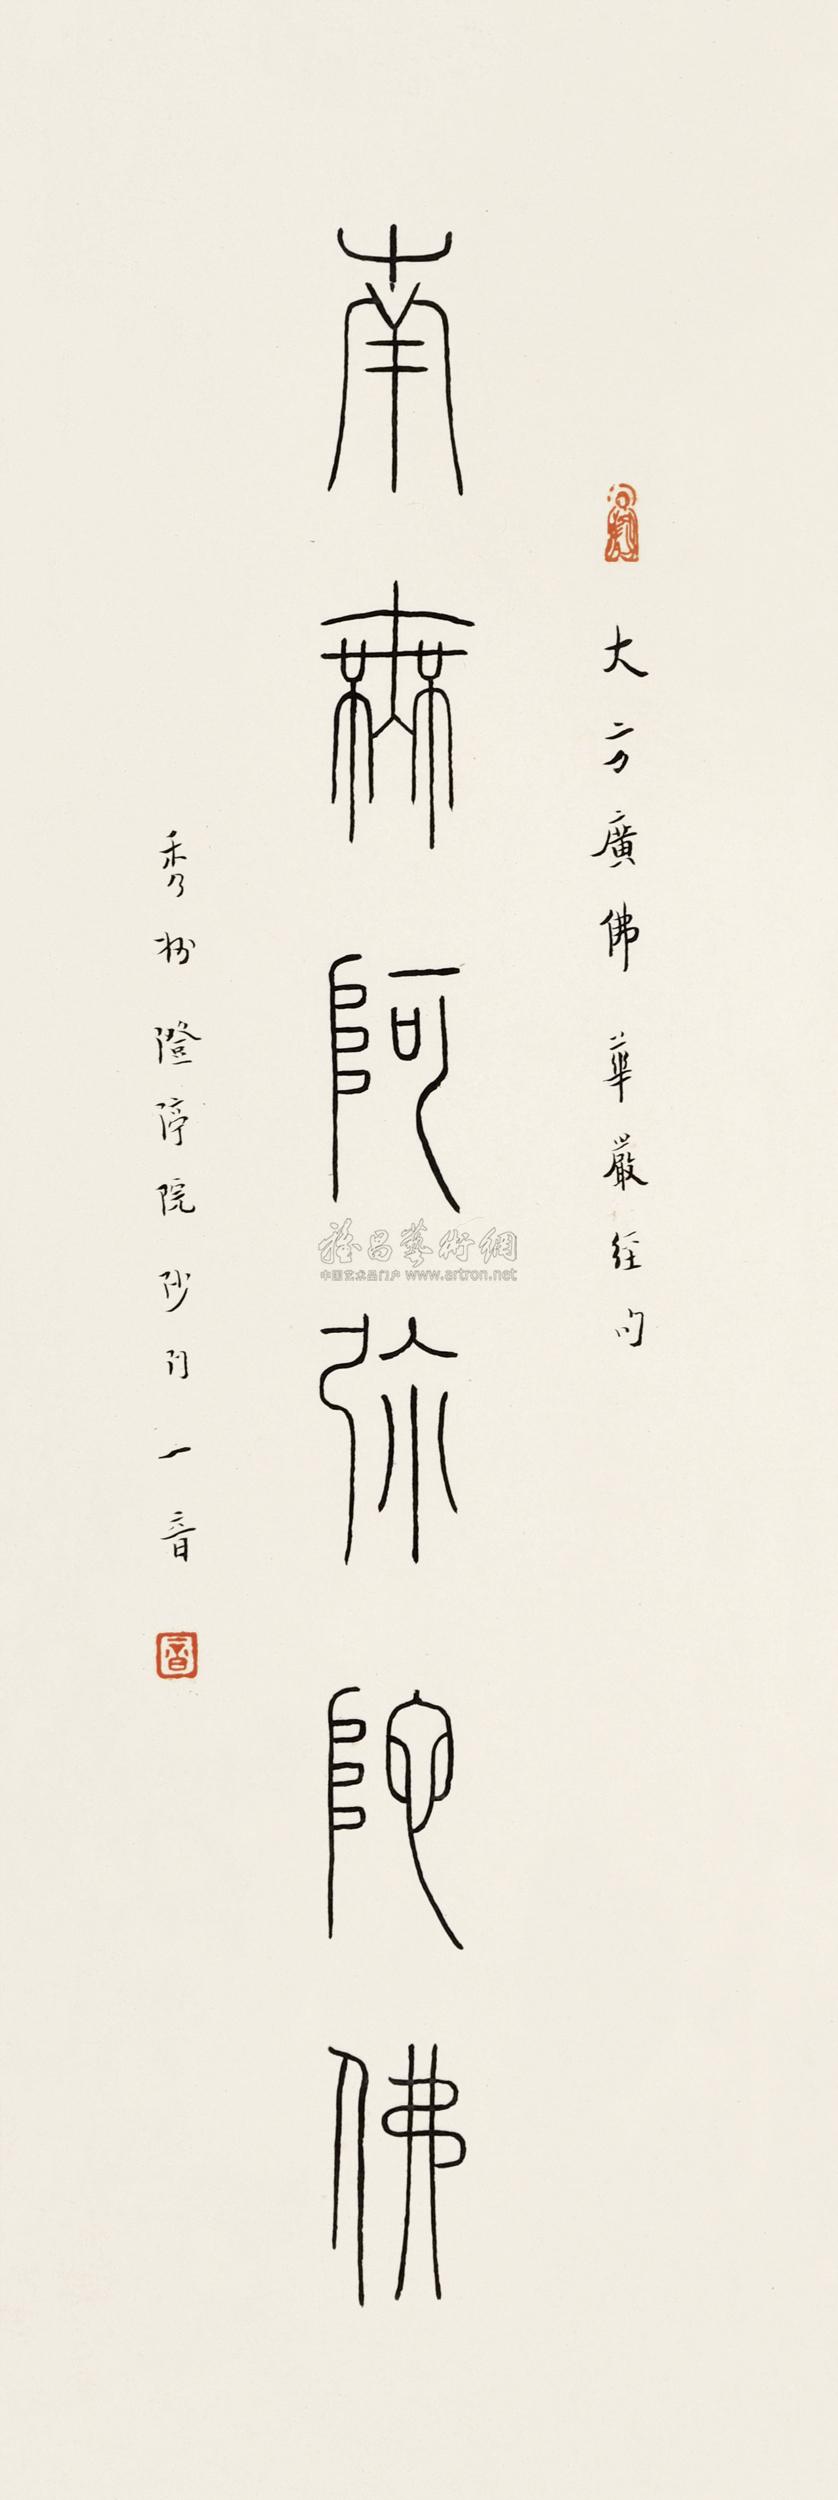 大方廣佛華嚴經句
南無阿弥陀佛
秀州隥停院沙門一音
雅昌藝術網
中国艺术品门户 www.artron.net